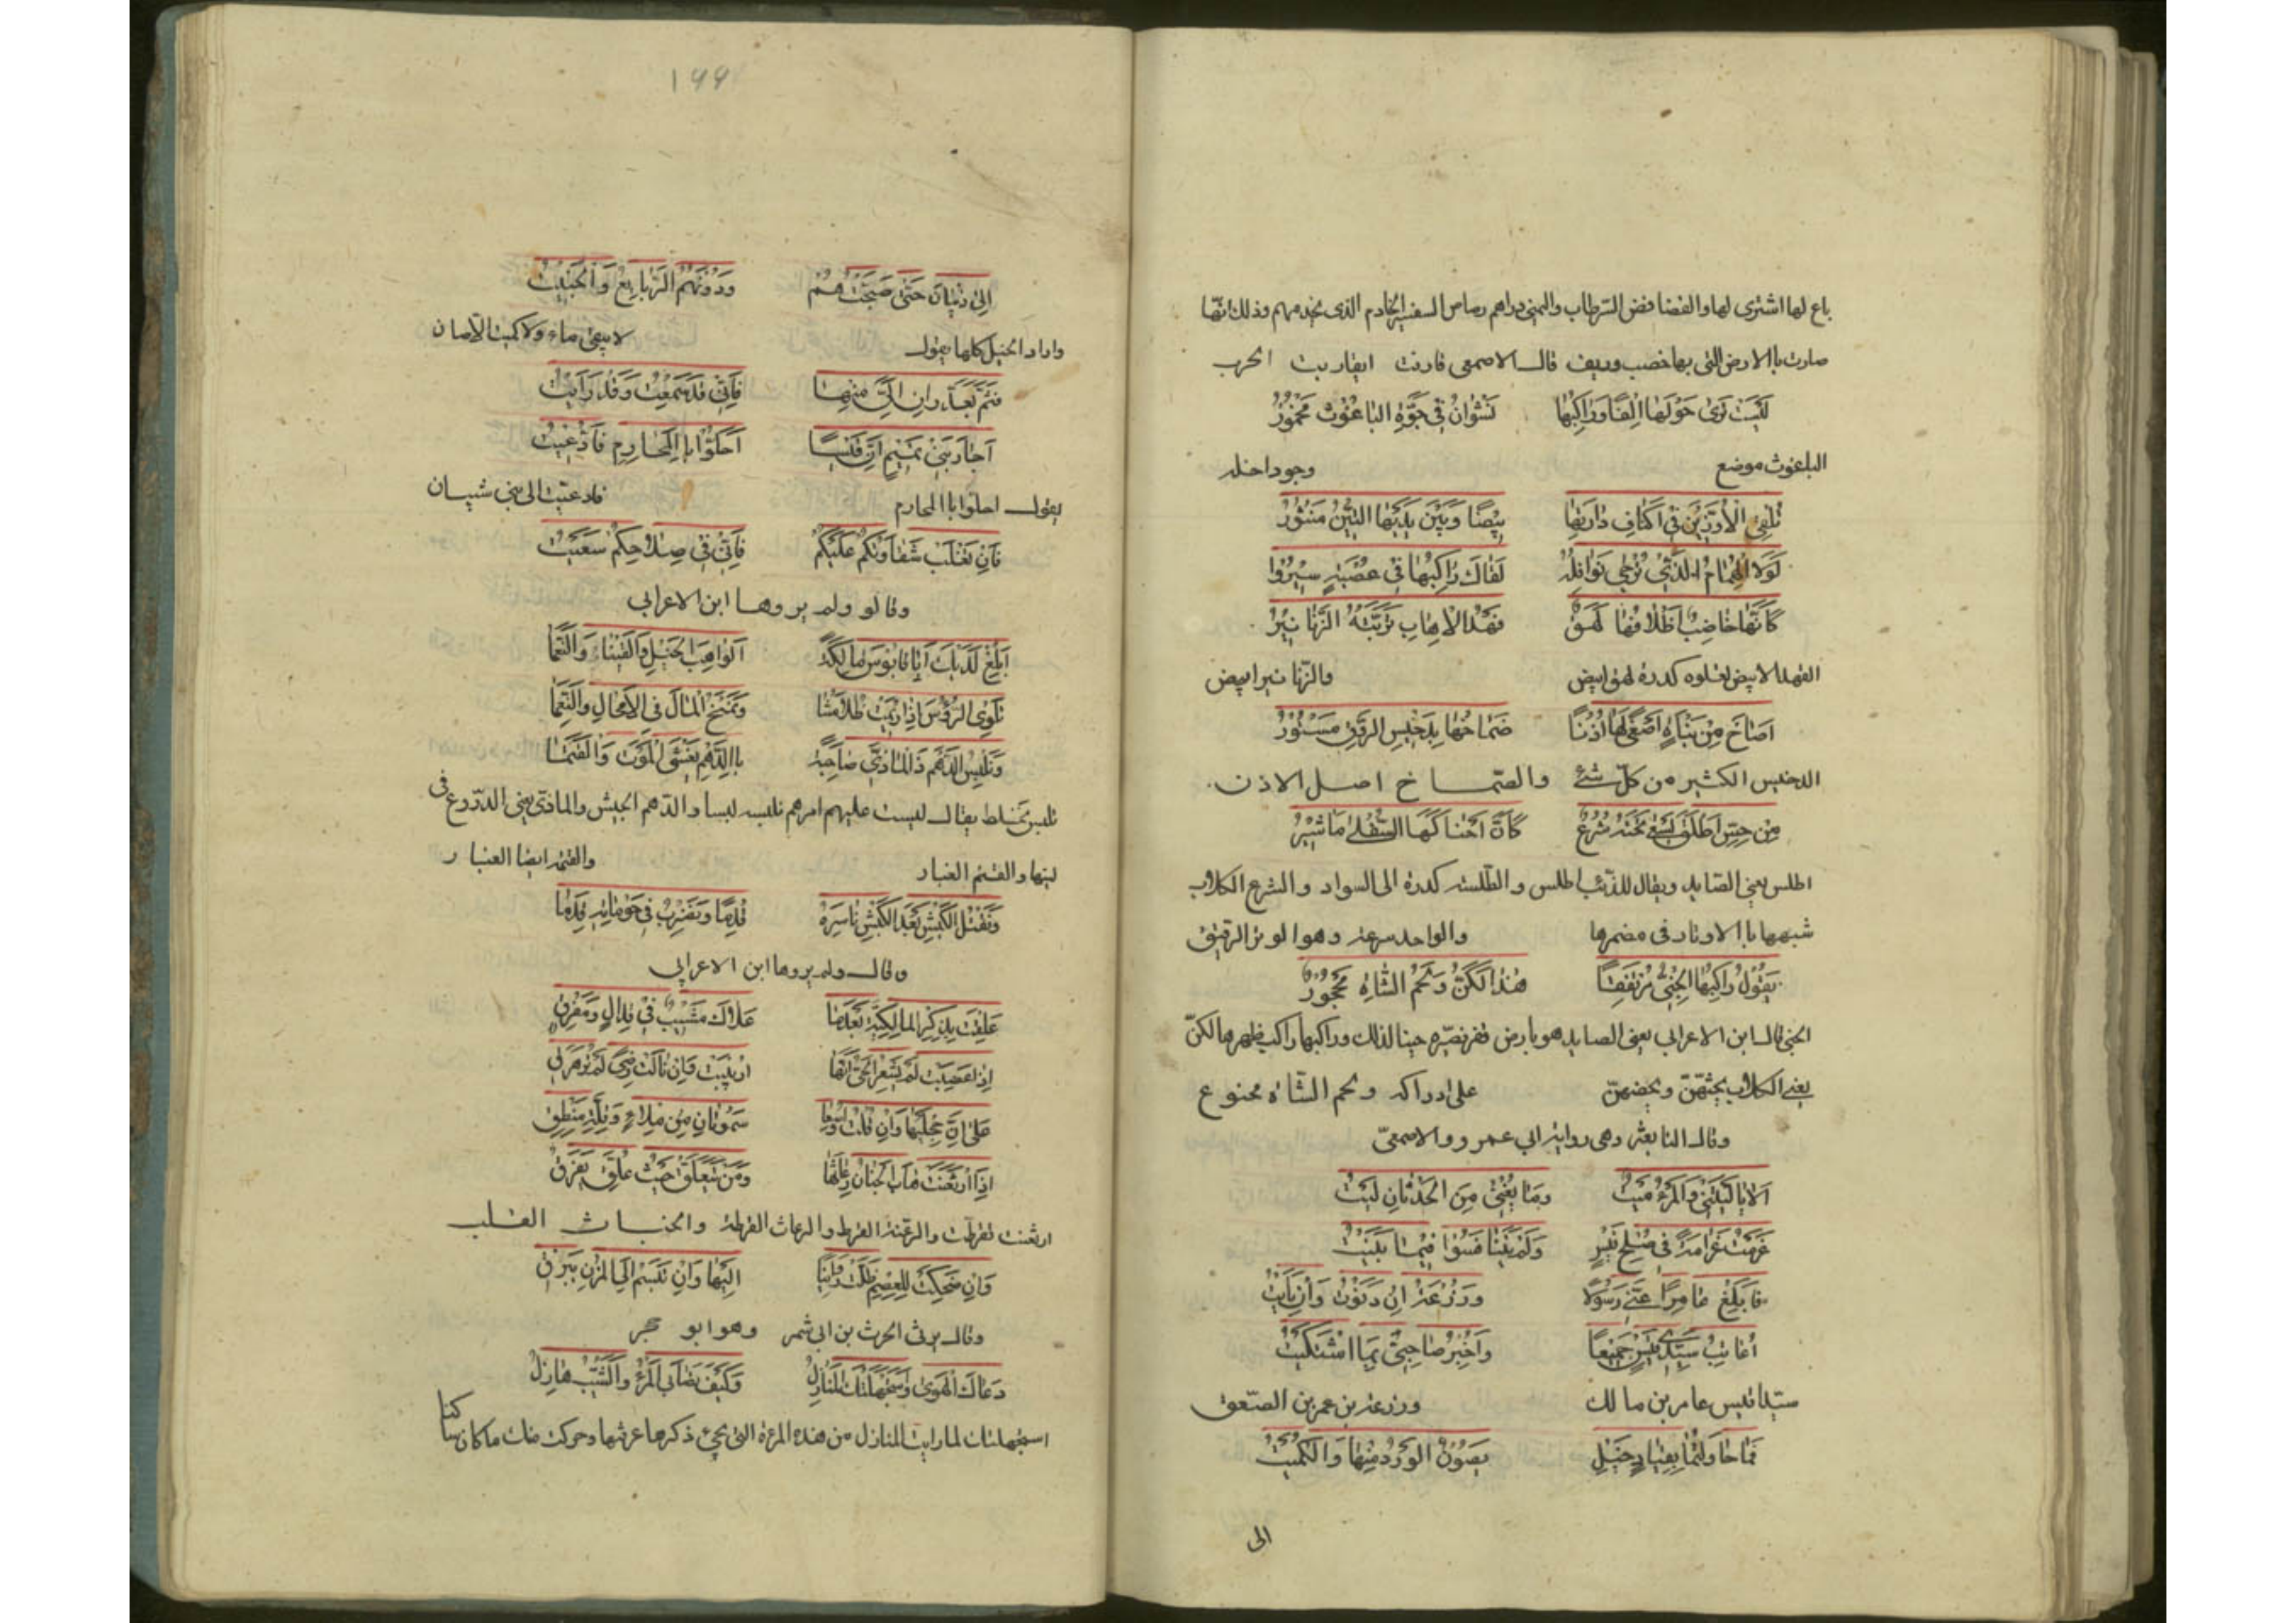 باع لها اشترى لها والفصافص الرطاب والنمى دراهم رصاص السفسير الخادم الذى يخدمهم وذلك انها
صارت باالارض التى بها خصب وريف قال الاصمعى قارنت ايقاربت الحرب
ليست ترى حولها الفا وراكبها نشوان فى جوة الباغوث مخمور
الباغوث موضع وجو داخله
تلقى الاوزين فى اكناف دارتها بيضا وبين يديها التين منثور
لولا الهمام الذى ترجى نوافله لقال راكبها فى عصبة سيروا
كانها خاضب اظلافها لهق قهد الاهاب تربته الزنانير
القهد الابيض تعلوه كدرة لهق ابيض والزنانير ابيض
اصاخ من نباة اصغى لها اذنا صماخها بدخيس الروق مستور
الدخيس الكثير من كل شئ والصماخ اصل الاذن
من حس اطلس تسعى تحته شرع كان احناكها السفلى ماشير
اطلس يعنى الصايد ويقال للذئب اطلس والطلسة كدرة الى السواد والشرع الكلاب
شبهها باالاوتار فى مضمرها والواحد سرعة وهوا لوتر الرقيق
يقول راكبها الجنى مرتفقا هذا لكن ولحم الشاة محجور
الجنى قال ابن الاعرابى يعنى الصايد هو بارض قفر نصيره جنيا لذلك وراكبها راكب ظهرها لكن
يعنى الكلاب يحثهن ويحضهن على ادراكه ولحم الشاة ممنوع
وقال النابغة وهى رواية ابى عمرو والاصمعى
الا ياليتنى والمرء ميت وما يغنى من الحدثان ليت
غرمت غرامة فى صلح قيس ولم يتنافسوا فيما بنيت
فابلغ عامرا عنى رسولا وزرعة ان دنوت وان نايت
اعاتب سيدى قيس جميعا واخبر صاحبى بما اشتكيت
سيدا قيس عامر بن مالك وزرعة بن عمر بن الصعق
فما حاولتما بقياد خيل يصون الورد منها والكميت
الى
١٩٩
الى ذبيان حتى صبحتهم ودونهم الربايع والخبيت
واراد الخيل كلها يقول لا يبقى ماء ولا كميت الا صان
فثم بعاد ران الى منها فانى قد سمعت وقد رايت
اجار بنى تميم ان قيسا احلوا باالمحارم فادعيت
يقول احلوا باالمحارم فادعيت الى بنى شيبان
فان تغلب شقاوتكم عليكم فانى فى صلاحكم سعيت
وقالو ولم يروها ابن الاعرابى
ابلغ لديك ابا قابوس مالكة الواهب الخيل والقينات والنعما
تلوى الرؤس اذا ريمت ظلامتنا وتمنح المال فى الامحال والنعما
وتلبس الدهم ذا الماذى صاحبه باالدهم يغشى الموت والقتما
تلبس تخلط يقال لبست عليهم امرهم تلبسه لبسا والدهم الجيش والماذى يعنى الدروع فى
لينها والقتم الغبار والقتمة ايضا الغبار
ونقتل الكبش بعد الكبش ناسره قدما ونضرب فى حوماته قدما
وقال ولم يروها ابن الاعرابى
علقت بذكر المالكية بعدما علاك مشيب فى قذال ومفرق
اذا غضبت لم يشعر الحى انها اريبت وان نالت رضى لم تزهزق
على ان حجليها وان قلت اوسعا صموتان من ملاء وقلة منطق
اذا ارتعثت خاف الجنان رعاثها ومن يتعلق حيث علق يفرق
ارتعثت تقرطت والرعثة القرط والرعاث القرطة والجنان القلب
وان ضحكت للعصم ظلت دوانيا اليها وان تبسم الى المزن يبرق
وقال يرثى الحرث بن ابى شمر وهو ابو حجر
دعاك الهوى واستجهلتك المنازل وكيف تصابى المرء والشيب هازل
استجهلتك لما رايت المنازل من هذه المرءة التى يجئ ذكرها عرفتها وحركت منك ما كان ساكنا